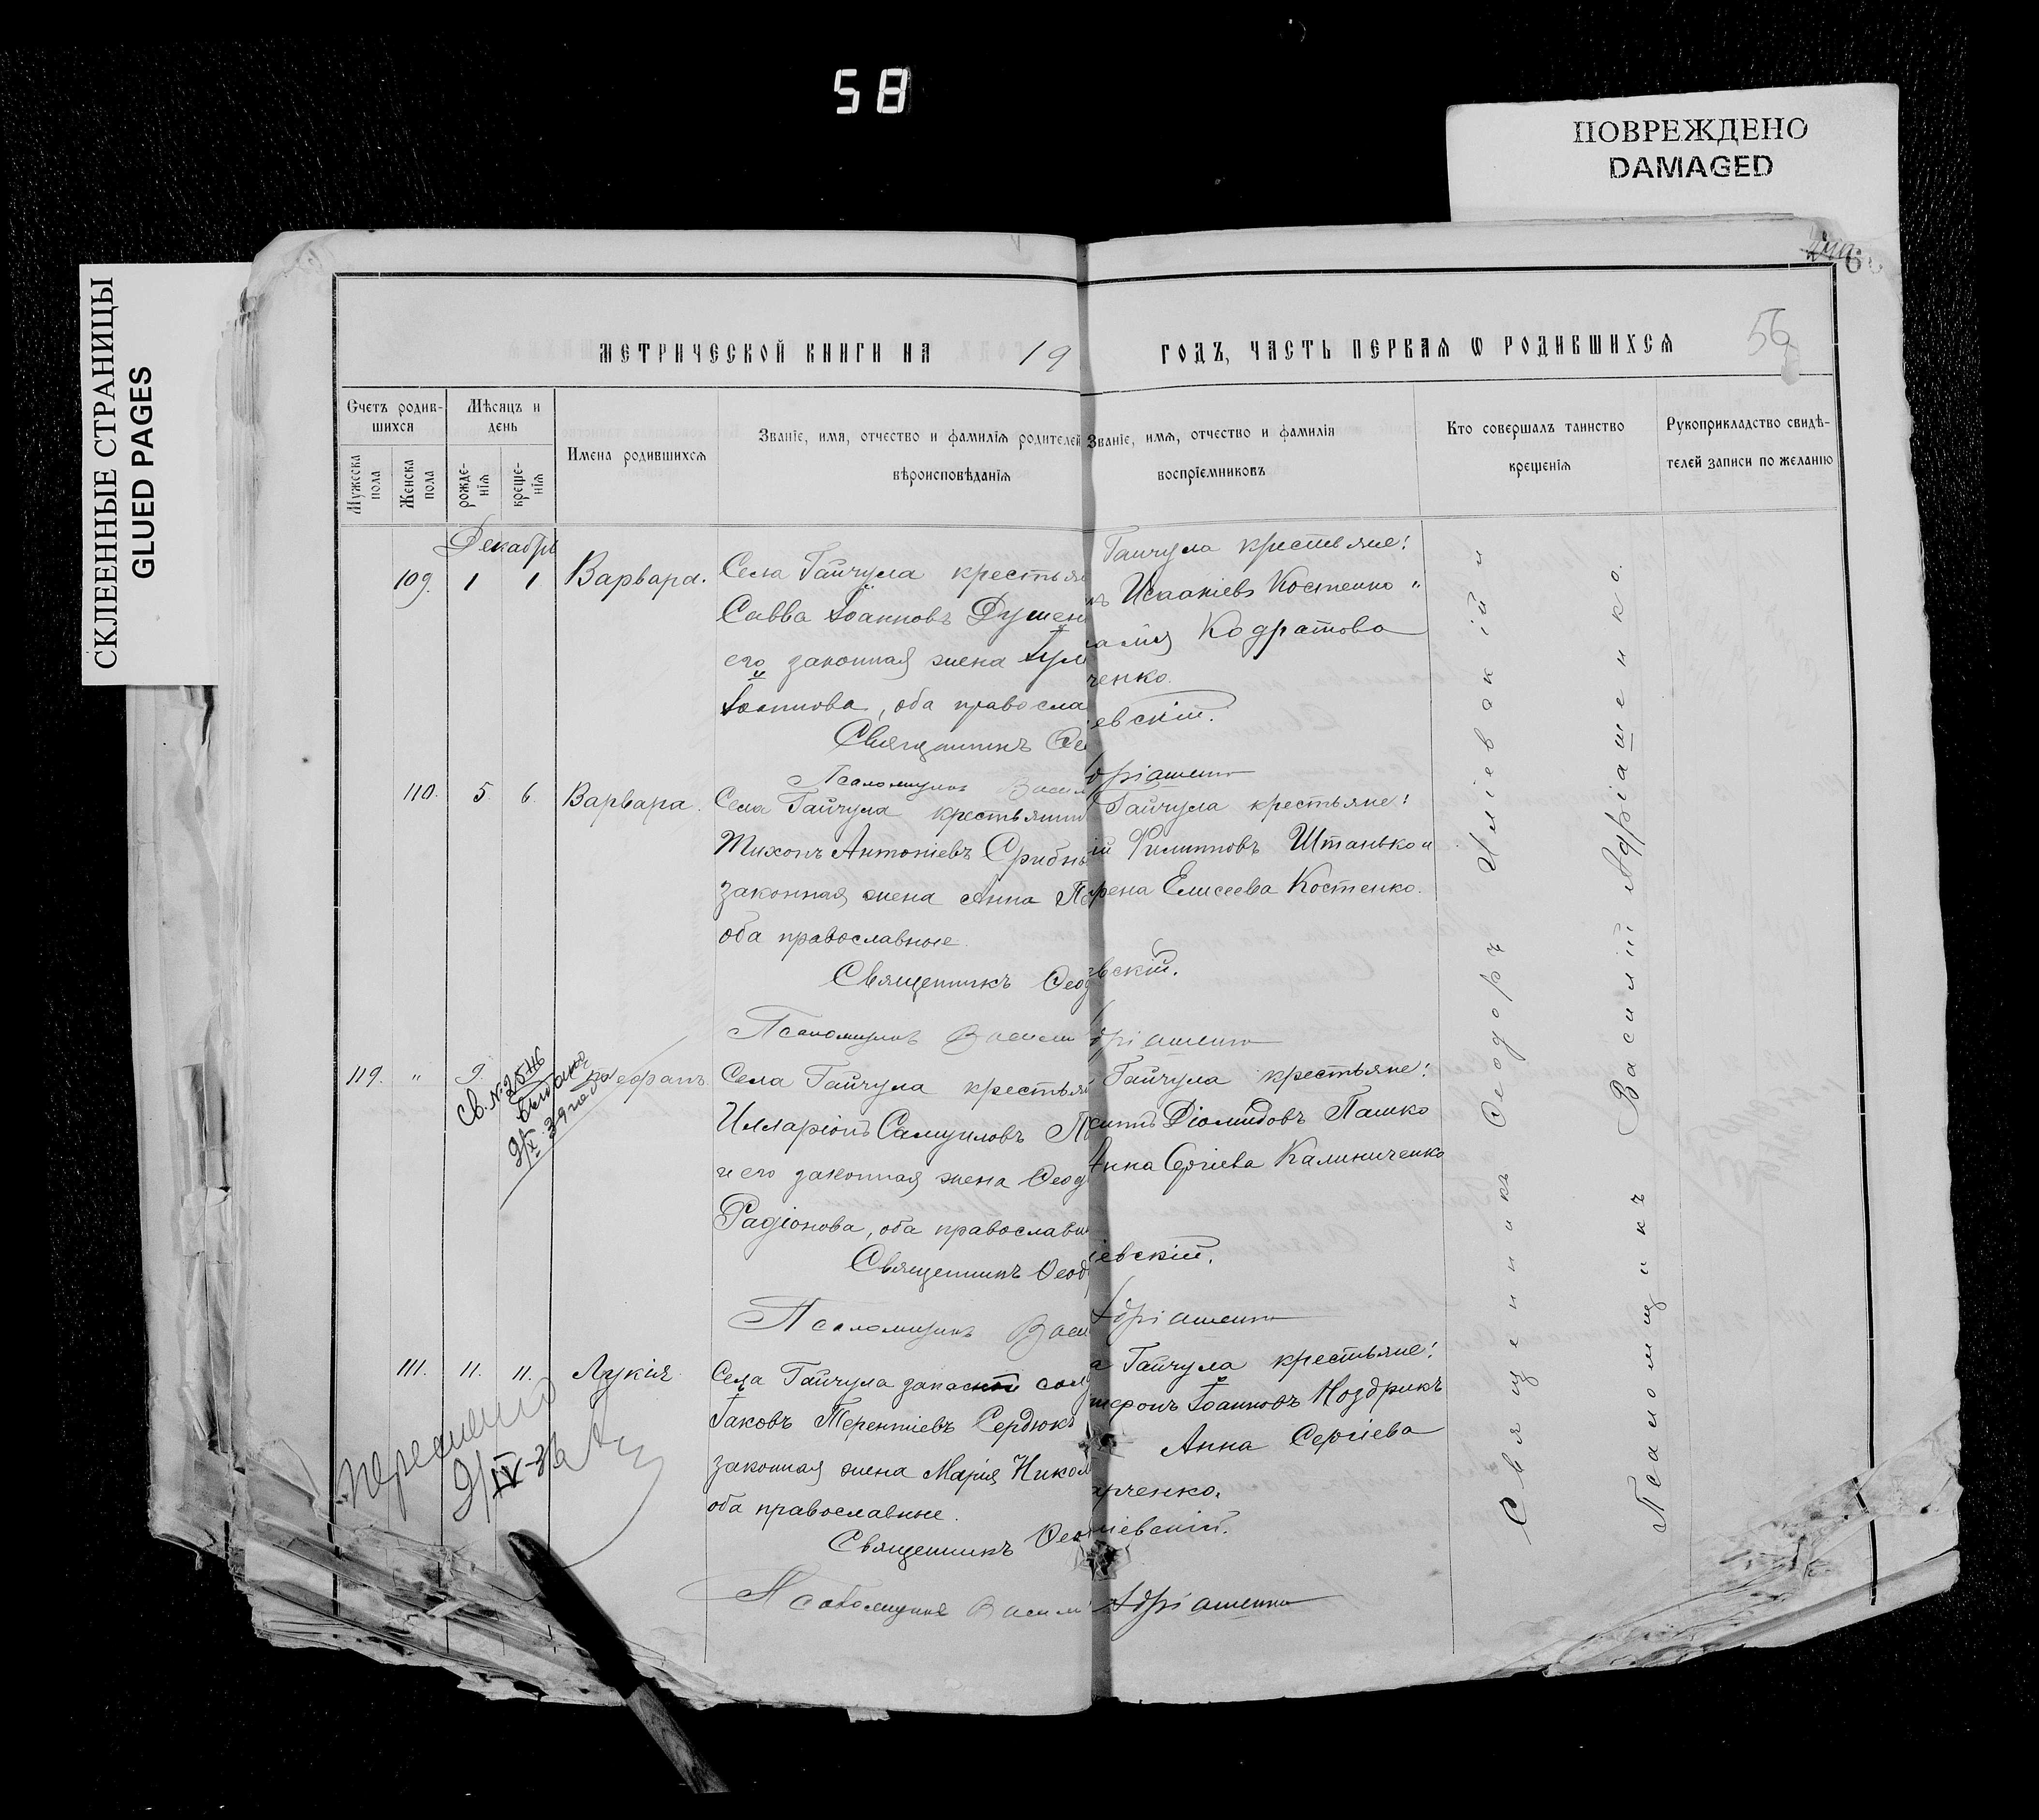 58
ПОВРЕЖДЕНО
DAMAGED
СКЛЕЕННЫЕ СТРАНИЦЫ
GLUED PAGES
56
МЕТРИЧЕСКОЙ КНИГИ НА 19
ГОДЪ, ЧАСТЬ ПЕРВАЯ Ѡ РОДИВШИХСЯ
Счетъ родив-
шихся
Мужеска
пола
Женска
пола
Мѣсяцъ и
день
рожде-
нія
креще-
нія
Имена родившихся
Званіе, имя, отчество и фамилія родителей
вѣроисповѣданія
Званіе, имя, отчество и фамилія
воспріемниковъ
Кто совершалъ таинство
крещенія
Рукоприкладство свидѣ-
телей записи по желанію
Декабрь
109. 1 1 Варвара.
Села Гайчула крестьян
Савва Іоанновъ Душен
его законная жена
Іоаннова, оба правосла
Священникъ Ѳе
Псаломщикъ Васил
Гайчула крестьяне:
Исаакіевъ Костенко
Кодратова
ченко.
евскій.
дріашенко
110. 5 6. Варвара.
Села Гайчула крестьянин
Тихонъ Антоніевъ Срибны
законная жена Анна
оба православные.
Священникъ Ѳеод
Псаломщикъ Васили
Гайчула крестьяне:
ій Филипповъ Штанько и
рена Елисеева Костенко.
евскій.
дріашенко
119. " 9.
Св. № 2546
выдано
Села Гайчула крестьян
Илларіонъ Самуиловъ
и его законная жена Ѳеод
Радіонова, оба православн
Священникъ Ѳеод
Псаломщикъ Васи
Гайчула крестьяне:
Діомидовъ Пашко
Анна Сергіева Калиниченко
іевскій.
Адріашенко
111. 11. 11. Лукія
Села Гайчула запасной сол
Іаковъ Терентіевъ Сердюкъ
законная жена Марія Никол
оба православные.
Священникъ Ѳео
Псаломщикъ Васил
а Гайчула крестьяне:
Іоанновъ Ноздрикъ
Анна Сергіева
рченко.
ліевскій.
Адріашенко
Священникъ Ѳеодоръ Иліевскій и
Псаломщикъ Василій Адріашенко.